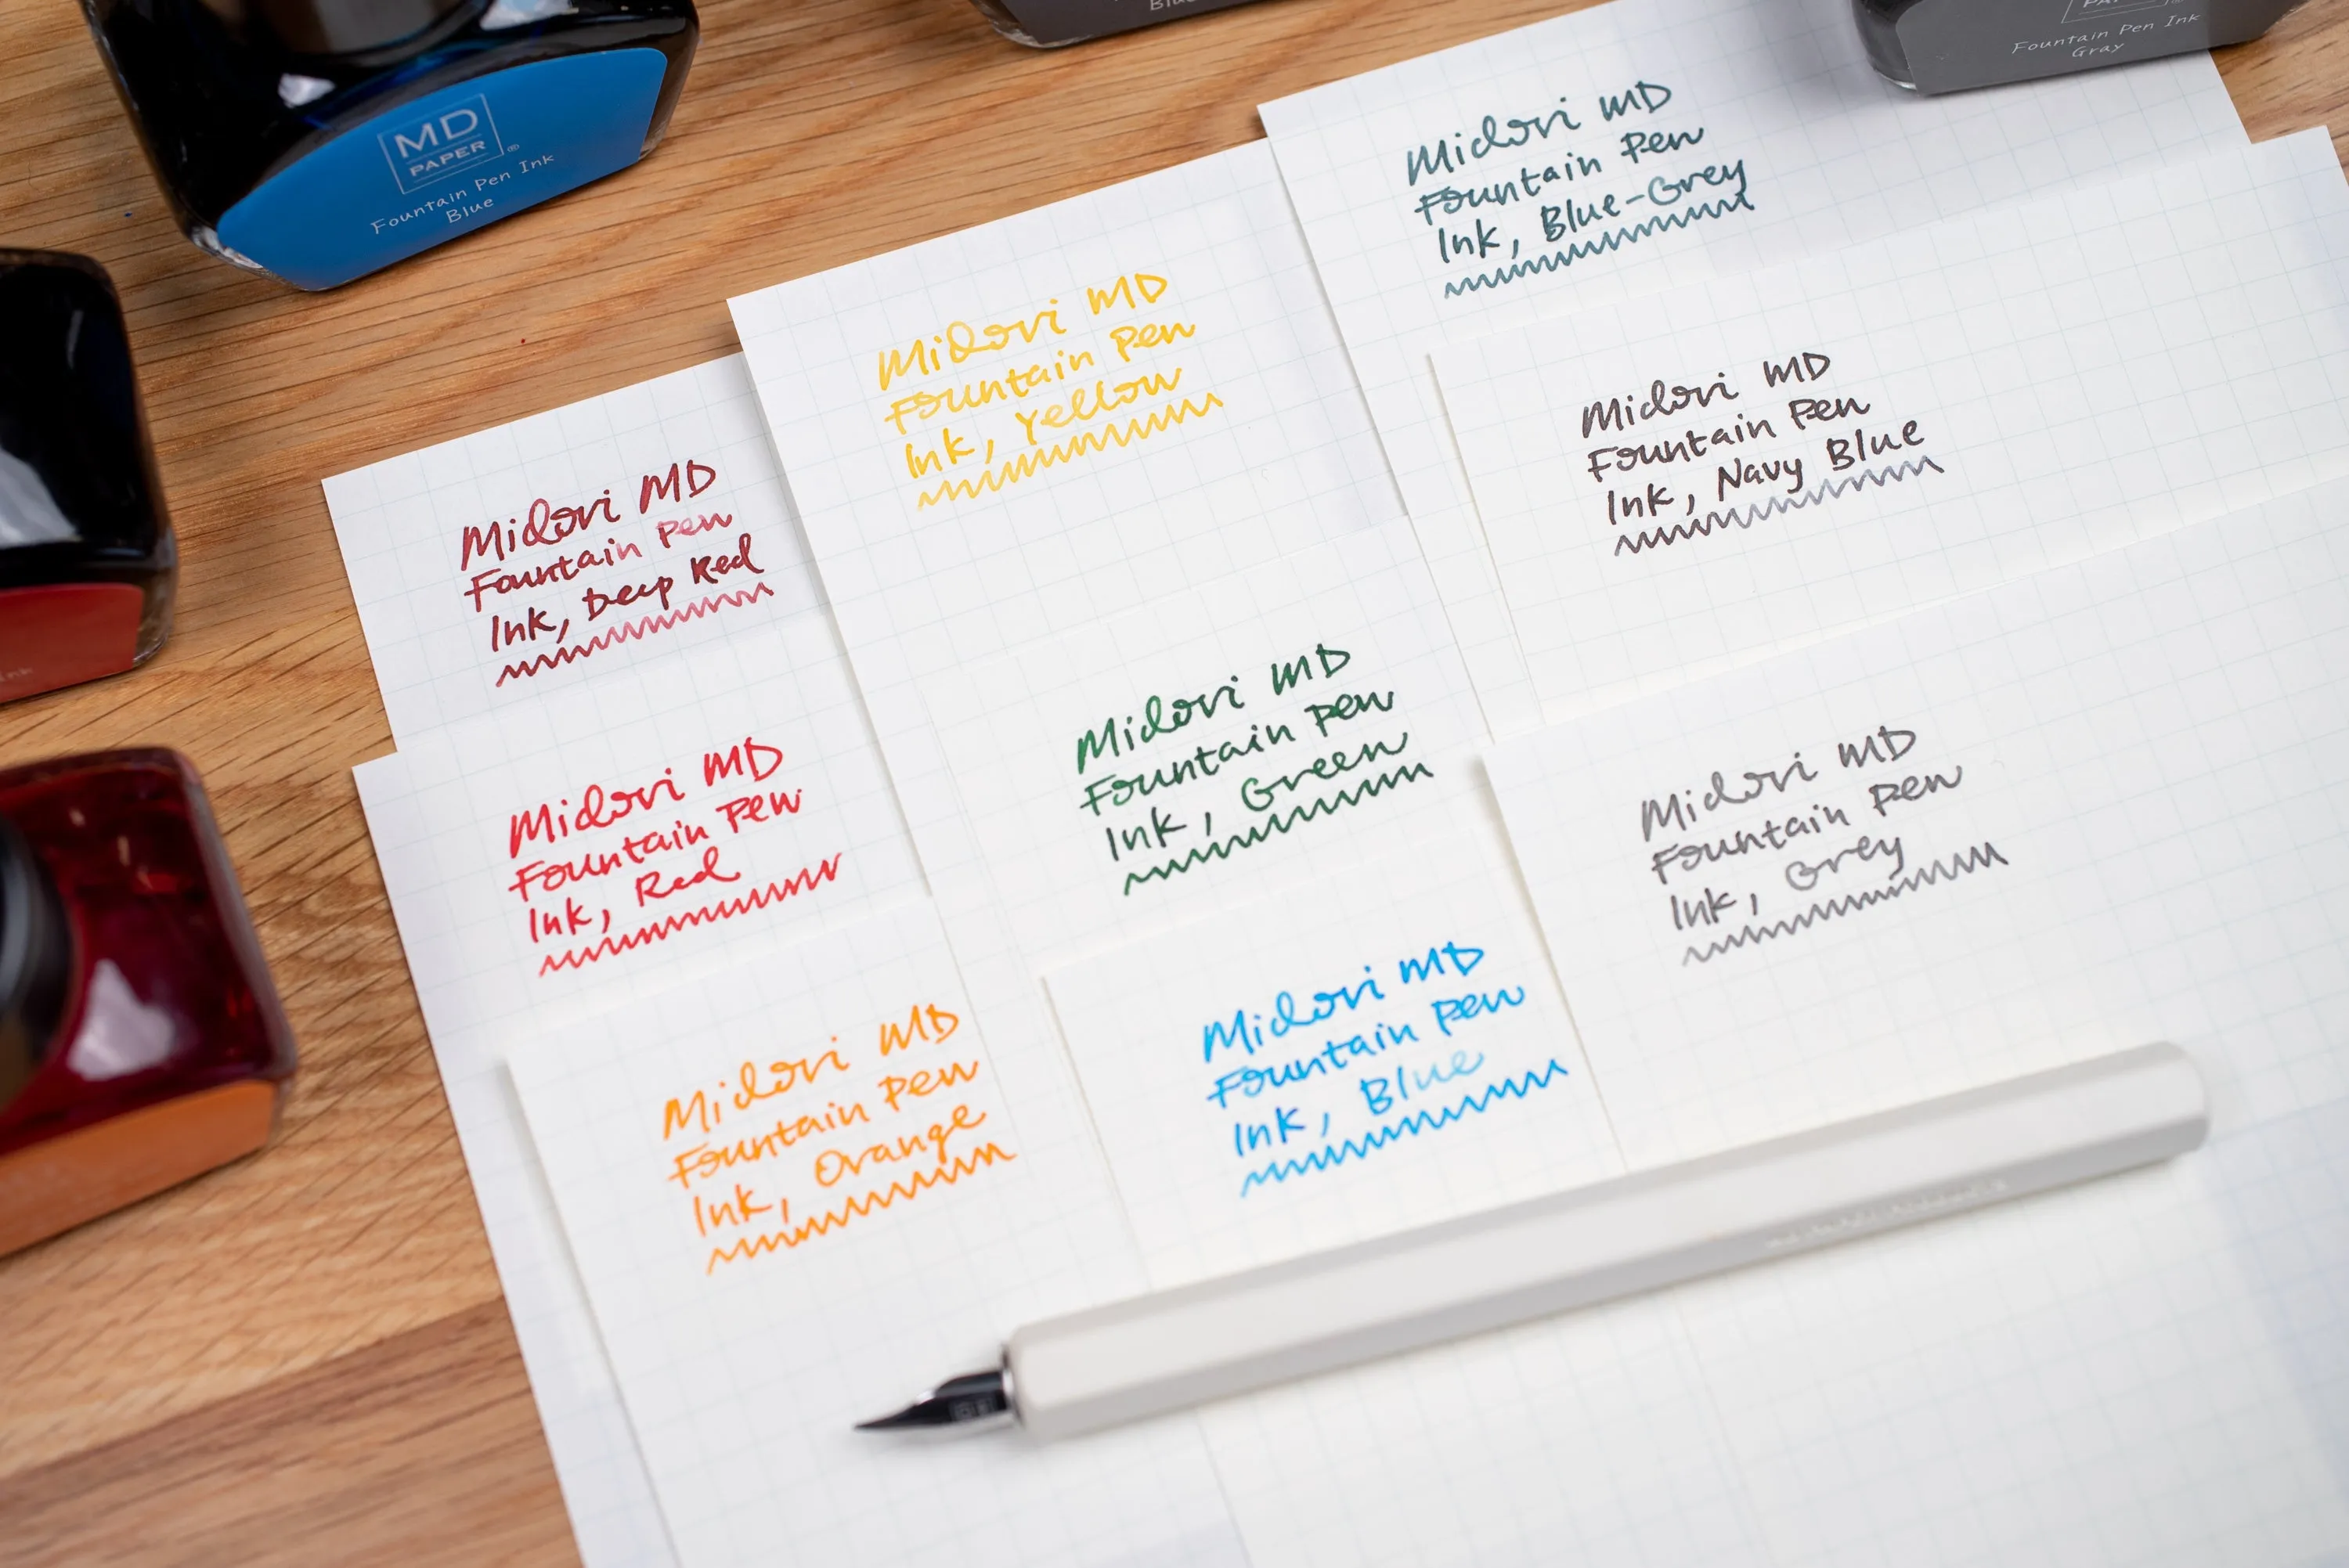 MD
PAPER
®
Fountain Pen Ink
Blue
Blue
PAPER
Fountain Pen Ink
Gray
Ink
Midori MD
Fountain Pen
Ink, Blue-Grey
Midori MD
Fountain Pen
Ink, Yellow
Midori MD
Fountain Pen
Ink, Navy Blue
Midori MD
Fountain Pen
Ink, Deep Red
Midori MD
Fountain Pen
Ink, Green
Midori MD
Fountain Pen
Ink, Red
Midori MD
Fountain Pen
Ink, Grey
Midori MD
Fountain Pen
Ink, Orange
Midori MD
Fountain Pen
Ink, Blue